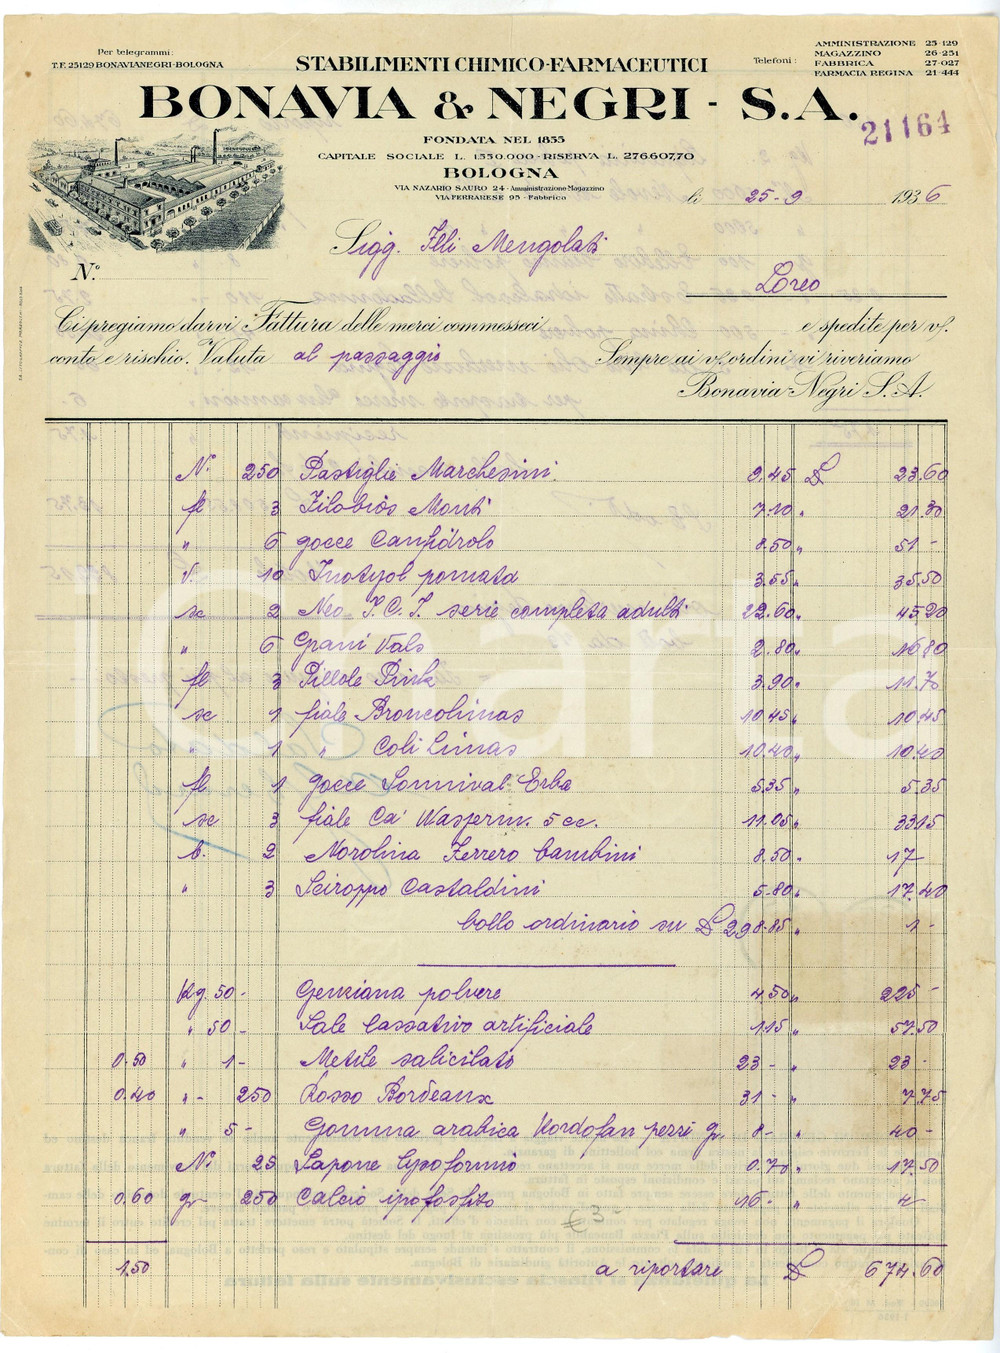 Per telegrammi:
T.F. 25129 BONAVIANEGRI-BOLOGNA
STABILIMENTI CHIMICO-FARMACEUTICI
Telefoni:
AMMINISTRAZIONE 25-129
MAGAZZINO 26-251
FABBRICA 27-027
FARMACIA REGINA 21-444
BONAVIA & NEGRI - S.A.
21164
FONDATA NEL 1855
CAPITALE SOCIALE L. 1.550.000 - RISERVA L. 276.607,70
BOLOGNA
VIA NAZARIO SAURO 24 - Amministrazione-Magazzino
VIA FERRARESE 95 - Fabbrica
li 25-9 1936
Sigg. Flli Mengolati
N.°
Loreo
Ci pregiamo darvi Fattura delle merci commesseci e spedite per vs.
conto e rischio. Valuta al passaggio Sempre ai vs. ordini vi riveriamo
Bonavia-Negri S.A.
N. 250 Pastiglie Marchesini 0.45 £ 23.60
fl 3 Filobiòs Monti 7.10 " 21.30
" 6 gocce Canfidrolo 8.50 " 51 -
V. 10 Inotyol pomata 3.55 " 35.50
sc 2 Neo I.C.I. serie completa adulti 22.60 " 45.20
" 6 Grani Vals 2.80 " 16.80
fl 3 Pillole Pink 3.90 " 11.70
sc 1 fiale Broncolimas 10.45 " 10.45
" 1 " Coli Limas 10.40 " 10.40
fl 1 gocce Sonnival Erba 5.35 " 5.35
sc 3 fiale Ca' Wasserm. 5 cc. 11.05 " 33.15
b. 2 Norolina Ferrero bambini 8.50 " 17 -
" 3 Sciroppo Castaldini 5.80 " 17.40
bollo ordinario su £ 298.85 " 1 -
Kg. 50 - Genziana polvere 4.50 " 225 -
" 50 - Sale lassativo artificiale 1.15 " 57.50
0.50 " 1 - Metile salicilato 23 - " 23 -
0.40 " - 250 Rosso Bordeaux 31 - " 7.75
" 5 - Gomma arabica Kordofan pezzi gr. 8 - " 40 -
N. 25 Sapone lysoformio 0.70 " 17.50
0.60 gr 250 Calcio ipofosfito 16 - " 4 -
€ 3 -
1.50 a riportare £ 674.60